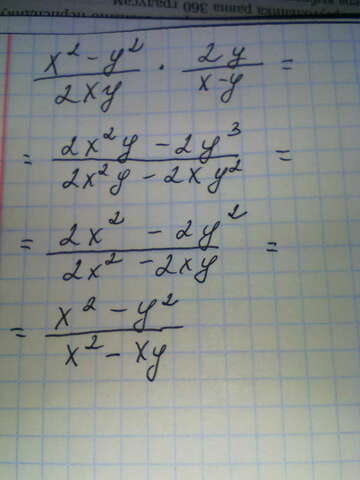 (x² - y²)/(2xy) · (2y)/(x-y) =
= (2x²y - 2y³)/(2x²y - 2xy²) =
= (2x² - 2y²)/(2x² - 2xy) =
= (x² - y²)/(x² - xy)